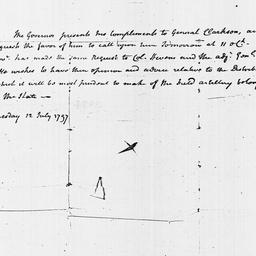 The Governor presents his complements to General Clarkson, and
request the favor of him to call upon him Tomorrow at 11 oCk.
has made the same request to Col. Stevens and the adj. Genl.
He wishes to have their opinion and advice relative to the Distrib
which it will be most prudent to make of the field artillery belong
the State —
esday 12 July 1797